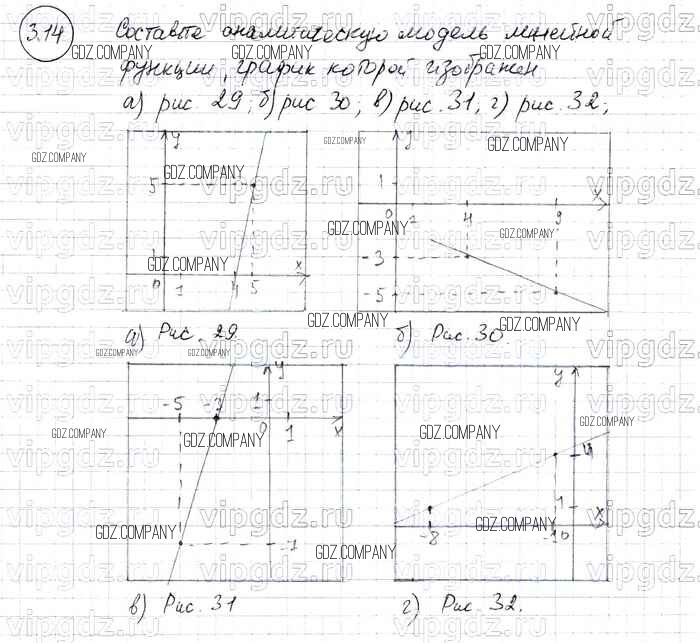 3.14 Составьте аналитическую модель линейной
функции, график которой изображен
а) рис. 29; б) рис 30; в) рис. 31; г) рис. 32;
y
5
x
0 1 4 5
а) Рис. 29
y
1
x
0 2 4 9
-3
-5
б) Рис. 30.
y
-5 -3 1
0 1 x
-7
в) Рис. 31
y
4
1
x
-8 -1 0
г) Рис. 32.
GDZ.COMPANY
vipgdz.ru